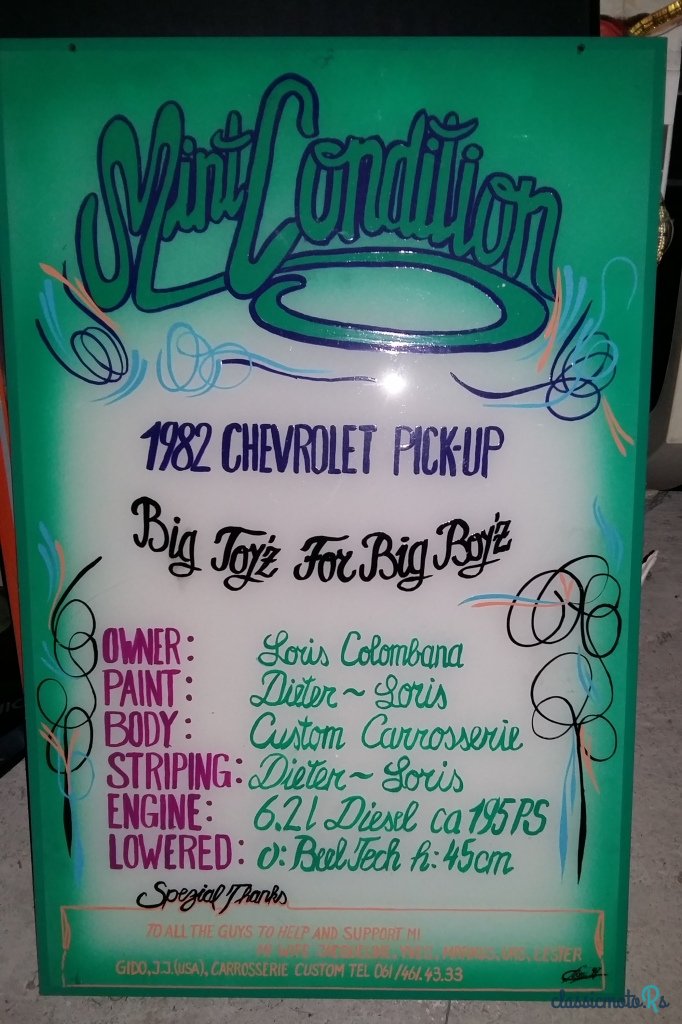 Mint Condition
1982 CHEVROLET PICK-UP
Big Toy'z For Big Boy'z
OWNER: Loris Colombana
PAINT: Dieter ~ Loris
BODY: Custom Carrosserie
STRIPING: Dieter ~ Loris
ENGINE: 6.2l Diesel ca 195PS
LOWERED: v: BellTech h: 45cm
Spezial Thanks
TO ALL THE GUYS TO HELP AND SUPPORT MI
MI WIFE JACQUELINE, MARKUS, URS, LESTER
GIDO, J.J. (USA), CARROSSERIE CUSTOM TEL 061/461.43.33
classicmoto.Rs